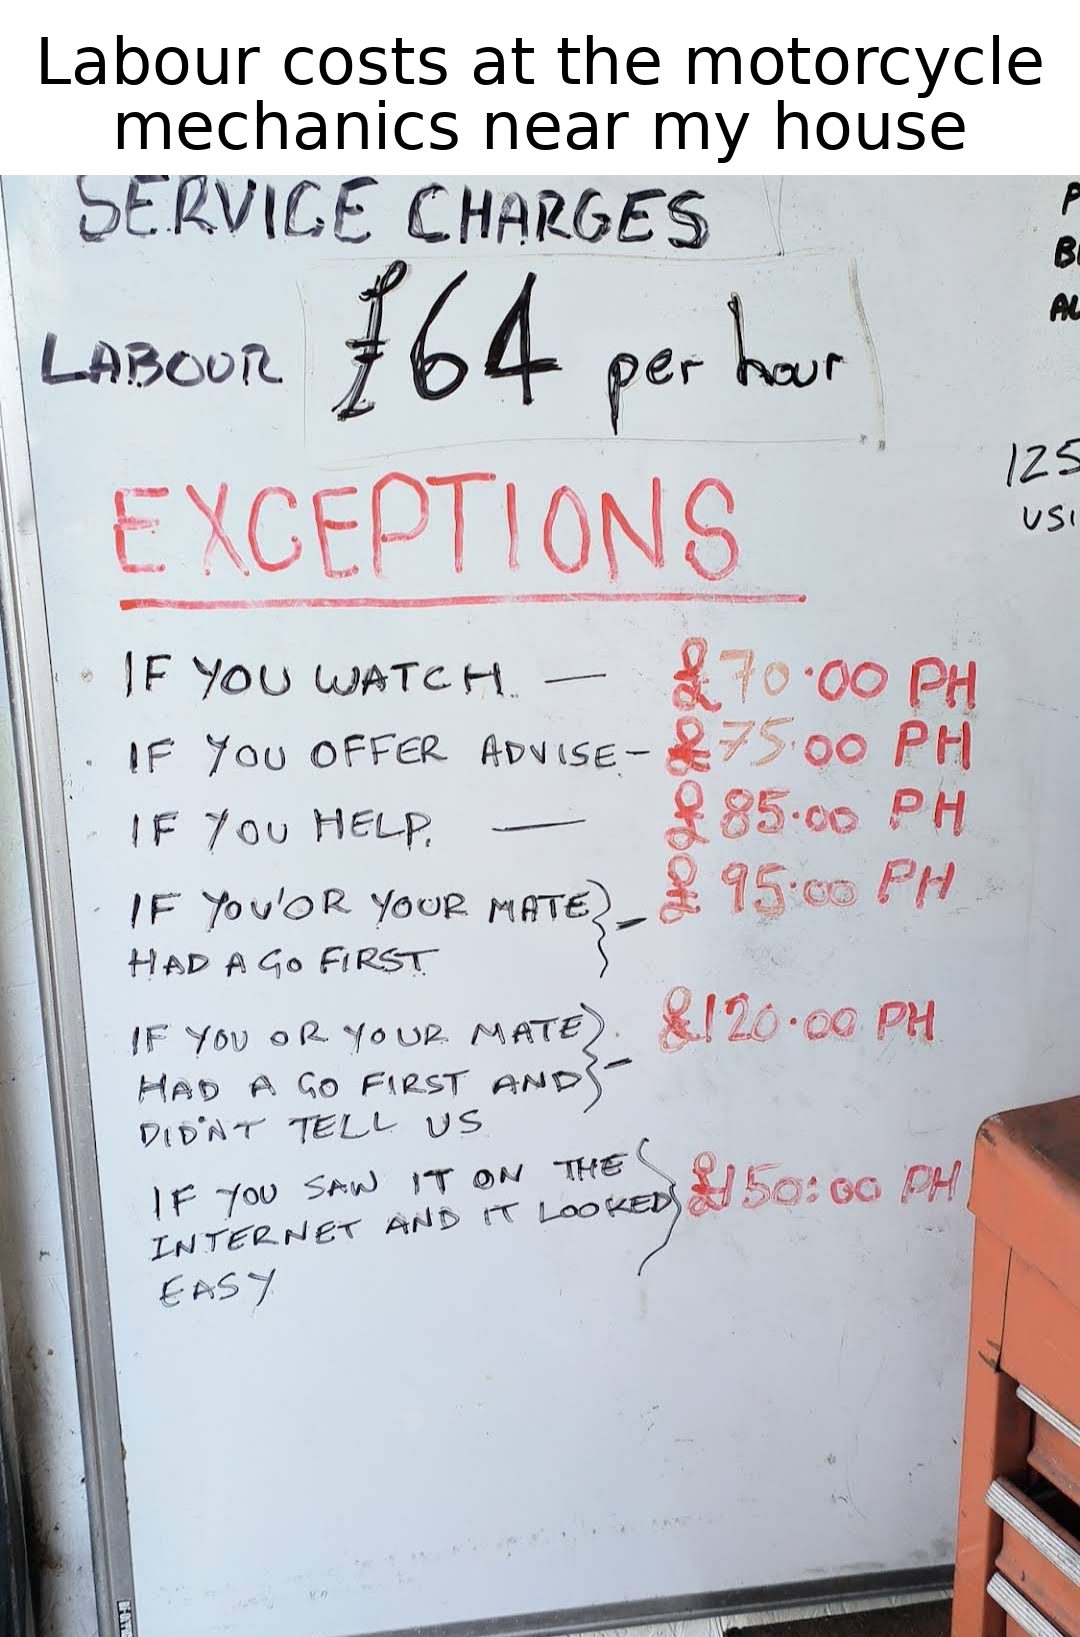 Labour costs at the motorcycle
mechanics near my house
SERVICE CHARGES
LABOUR £64 per hour
EXCEPTIONS
IF YOU WATCH. — £70.00 PH
IF YOU OFFER ADVISE - £75.00 PH
IF YOU HELP. — £85.00 PH
IF YOU'OR YOUR MATE } - £95.00 PH
HAD A GO FIRST
IF YOU OR YOUR MATE } - £120.00 PH
HAD A GO FIRST AND
DID'NT TELL US
IF YOU SAW IT ON THE } £150:00 PH
INTERNET AND IT LOOKED
EASY
125